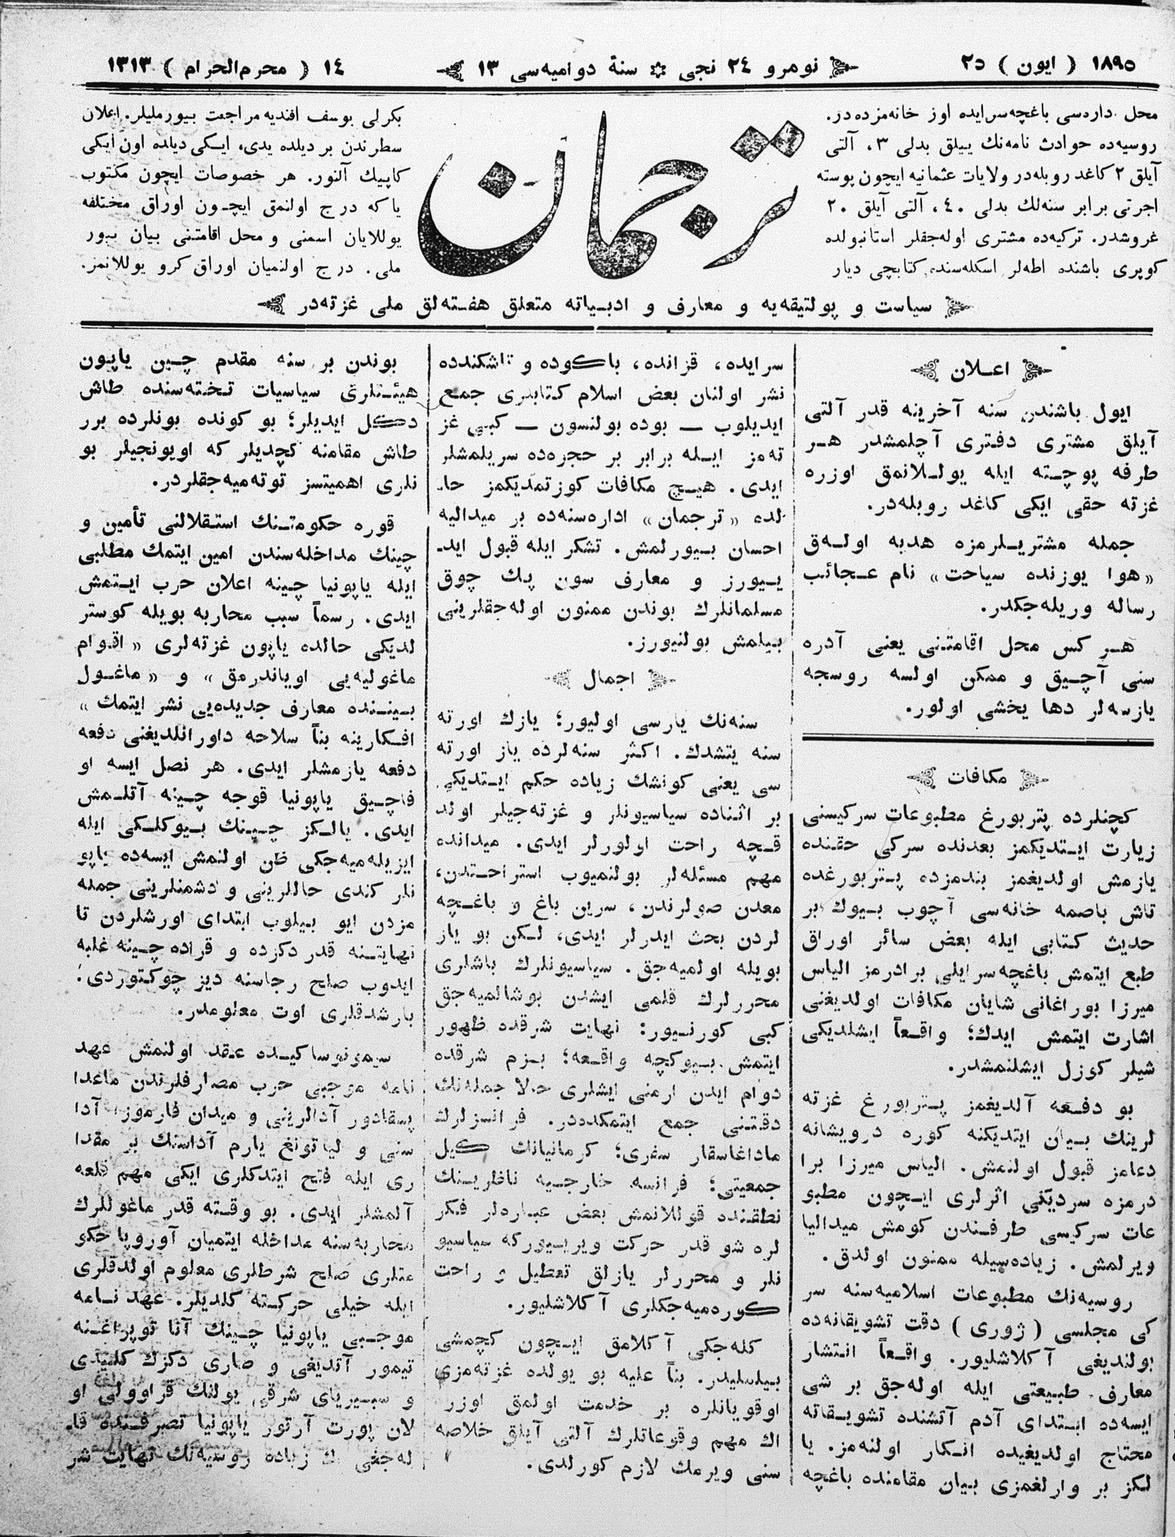 ١٨٩٥ ( ايون ) ٢٥
نومرو ٢٤ نجى ✡ سنهٔ دواميه‌سى ١٣
١٤ ( محرم‌الحرام ) ١٣١٣
محل داره‌سى باغچه‌سرايده اوز خانه‌مزده‌در.
روسيه‌ده حوادث نامه‌نك ييلق بدلى ٣، آلتى
آيلق ٢ كاغد روبله‌در ولايات عثمانيه ايچون پوسته
اجرتى برابر سنه‌لك بدلى ٤٠، آلتى آيلق ٢٠
غروشدر. تركيه‌ده مشترى اوله‌جقلر استانبولده
كوپرى باشنده اطه‌لر اسكله‌سنده كتابچى ديار
ترجمان
بكرلى يوسف افنديه مراجعت بيورمليلر. اعلان
سطرندن بر ديلده يدى، ايكى ديلده اون ايكى
كاپيك آلنور. هر خصوصات ايچون مكتوب
ياكه درج اولنمق ايچون اوراق مختلفه
يوللايان اسمنى و محل اقامتنى بيان بيور
ملى. درج اولنميان اوراق كرو يوللانمز.
سياست و پولتيقه‌يه و معارف و ادبياته متعلق هفته‌لق ملى غزته‌در
اعلان
ايول باشندن سنه آخرينه قدر آلتى
آيلق مشترى دفترى آچلمشدر هر
طرفه پوچته ايله يوللانمق اوزره
غزته حقى ايكى كاغد روبله‌در.
جمله مشتريلرمزه هديه اوله‌ق
«هوا يوزنده سياحت» نام عجائب
رساله وريله‌جكدر.
هر كس محل اقامتنى يعنى آدره
سنى آچيق و ممكن اولسه روسجه
يازسه‌لر دها يخشى اولور.
مكافات
كچنلرده پتربورغ مطبوعات سركيسنى
زيارت ايتديكمز بعدنده سركى حقنده
يازمش اولديغمز بندمزده پتربورغده
تاش باصمه خانه‌سى آچوب بيوك بر
حديث كتابى ايله بعض سائر اوراق
طبع ايتمش باغچه‌سرايلى برادرمز الياس
ميرزا بوراغانى شايان مكافات اولديغنى
اشارت ايتمش ايدك؛ واقعاً ايشلديكى
شيلر كوزل ايشلنمشدر.
بو دفعه آلديغمز پتربورغ غزته
لرينك بيان ايتديكنه كوره درويشانه
دعامز قبول اولنمش. الياس ميرزا برا
درمزه سرديكى اثرلرى ايچون مطبو
عات سركيسى طرفندن كومش ميداليا
ويرلمش. زياده‌سيله ممنون اولدق.
روسيه‌نك مطبوعات اسلاميه‌سنه سر
كى مجلسى (ژورى) دقت تشويقانه‌ده
بولنديغى آكلاشليور. واقعاً انتشار
معارف طبيعتى ايله اوله‌جق بر شى
ايسه‌ده ابتداى آدم آتشنده تشويقاته
محتاج اولديغيده انكار اولنه‌مز. يا
لكز بر وارلغمزى بيان مقامنده باغچه
سرايده، قزانده، باكوده و تاشكندده
نشر اولنان بعض اسلام كتابلرى جمع
ايديلوب — بوده بولنسون — كبى غز
ته‌مز ايله برابر بر حجره‌ده سريلمشلر
ايدى. هيچ مكافات كوزتمديكمز حا‌
لده «ترجمان» اداره‌سنه‌ده بر ميداليه
احسان بيورلمش. تشكر ايله قبول ايد‌
ييورز و معارف سون پك چوق
مسلمانلرك بوندن ممنون اوله‌جقلرينى
بيلمش بولنيورز.
اجمال
سنه‌نك يارسى اوليور؛ يازك اورته
سنه يتشدك. اكثر سنه‌لرده ياز اورته
سى يعنى كونشك زياده حكم ايتديكى
بر اثناده سياسيونلر و غزته‌جيلر اولد
قچه راحت اولورلر ايدى. ميدانده
مهم مسئله‌لر بولنميوب استراحتدن،
معدن صولرندن، سرين باغ و باغچه
لردن بحث ايدرلر ايدى، لكن بو ياز
بويله اولميه‌جق. سياسيونلرك باشلرى
محررلرك قلمى ايشدن بوشالميه‌جق
كبى كورنيور: نهايت شرقده ظهور
ايتمش بيوكچه واقعه؛ بزم شرقده
دوام ايدن ارمنى ايشلرى حالا جمله‌نك
دقتنى جمع ايتمكده‌در. فرانسزلرك
ماداغاسقار سفرى؛ كرمانيانك كيل
جمعيتى؛ فرانسه خارجيه ناظرينك
نطقنده قوللانمش بعض عباره‌لر فكر
لره شو قدر حركت ويرييوركه سياسيو
نلر و محررلر يازلق تعطيل و راحت
كوره‌ميه‌جكلرى آكلاشليور.
كله‌جكى آكلامق ايچون كچمشى
بيلمليدر. بناً عليه بو يولده غزته‌مزى
اوقويانلره بر خدمت اولمق اوزر
اك مهم وقوعاتلرك آلتى آيلق خلاصه
سنى ويرمك لازم كورلدى.
بوندن بر سنه مقدم چين ياپون
هيئتلرى سياسيات تخته‌سنده طاش
دكل ايديلر؛ بو كونده بونلرده برر
طاش مقامنه كچديلر كه اويونجيلر بو
نلرى اهميتسز توته‌ميه‌جقلردر.
قوره حكومتنك استقلالنى تأمين و
چينك مداخله‌سندن امين ايتمك مطلبى
ايله ياپونيا چينه اعلان حرب ايتمش
ايدى. رسماً سبب محاربه بويله كوستر
لديكى حالده ياپون غزته‌لرى «اقوام
ماغوليه‌يى اوياندرمق» و «ماغول
بيننده معارف جديده‌يى نشر ايتمك»
افكارينه بناً سلاحه داورانلديغنى دفعه
دفعه يازمشلر ايدى. هر نصل ايسه او
فاچيق ياپونيا قوجه چينه آتلمش
ايدى. يالكز چينك بيوكلكى ايله
ايزيله‌ميه‌جكى ظن اولنمش ايسه‌ده ياپو
نلر كندى حاللرينى و دشمنلرينى جمله
مزدن ايو بيلوب ابتداى اورشلردن تا
نهايتنه قدر دكزده و قراده چينه غلبه
ايدوب صلح رجاسنه ديز چوكتوردى؛
بارشدقلرى اوت معلومدر.
سيمونوساكيده عقد اولنمش عهد
نامه موجبى حرب مصارفلرندن ماعدا
پسقادور آدالرينى و ميدان فارموزا آدا
سنى و لياتونغ يارم آداسنك بر مقدا
رى ايله فتح ايتدكلرى ايكى مهم قلعه
آلمشلر ايدى. بو وقته قدر ماغوللرك
محاربه‌سنه مداخله ايتميان آوروپا حكو
متلرى صلح شرطلرى معلوم اولدقلرى
ايله خيلى حركته كلديلر. عهد نامه
موجبى ياپونيا چينك آنا توپراغنه
تيمور آتديغى و صارى دكزك كليدى
و سيبرياى شرقى يولنك قراوولى او
لان پورت آرتور ياپونيا تصرفنده قا‌
له‌جغى اك زياده روسيه‌نك نهايت شر